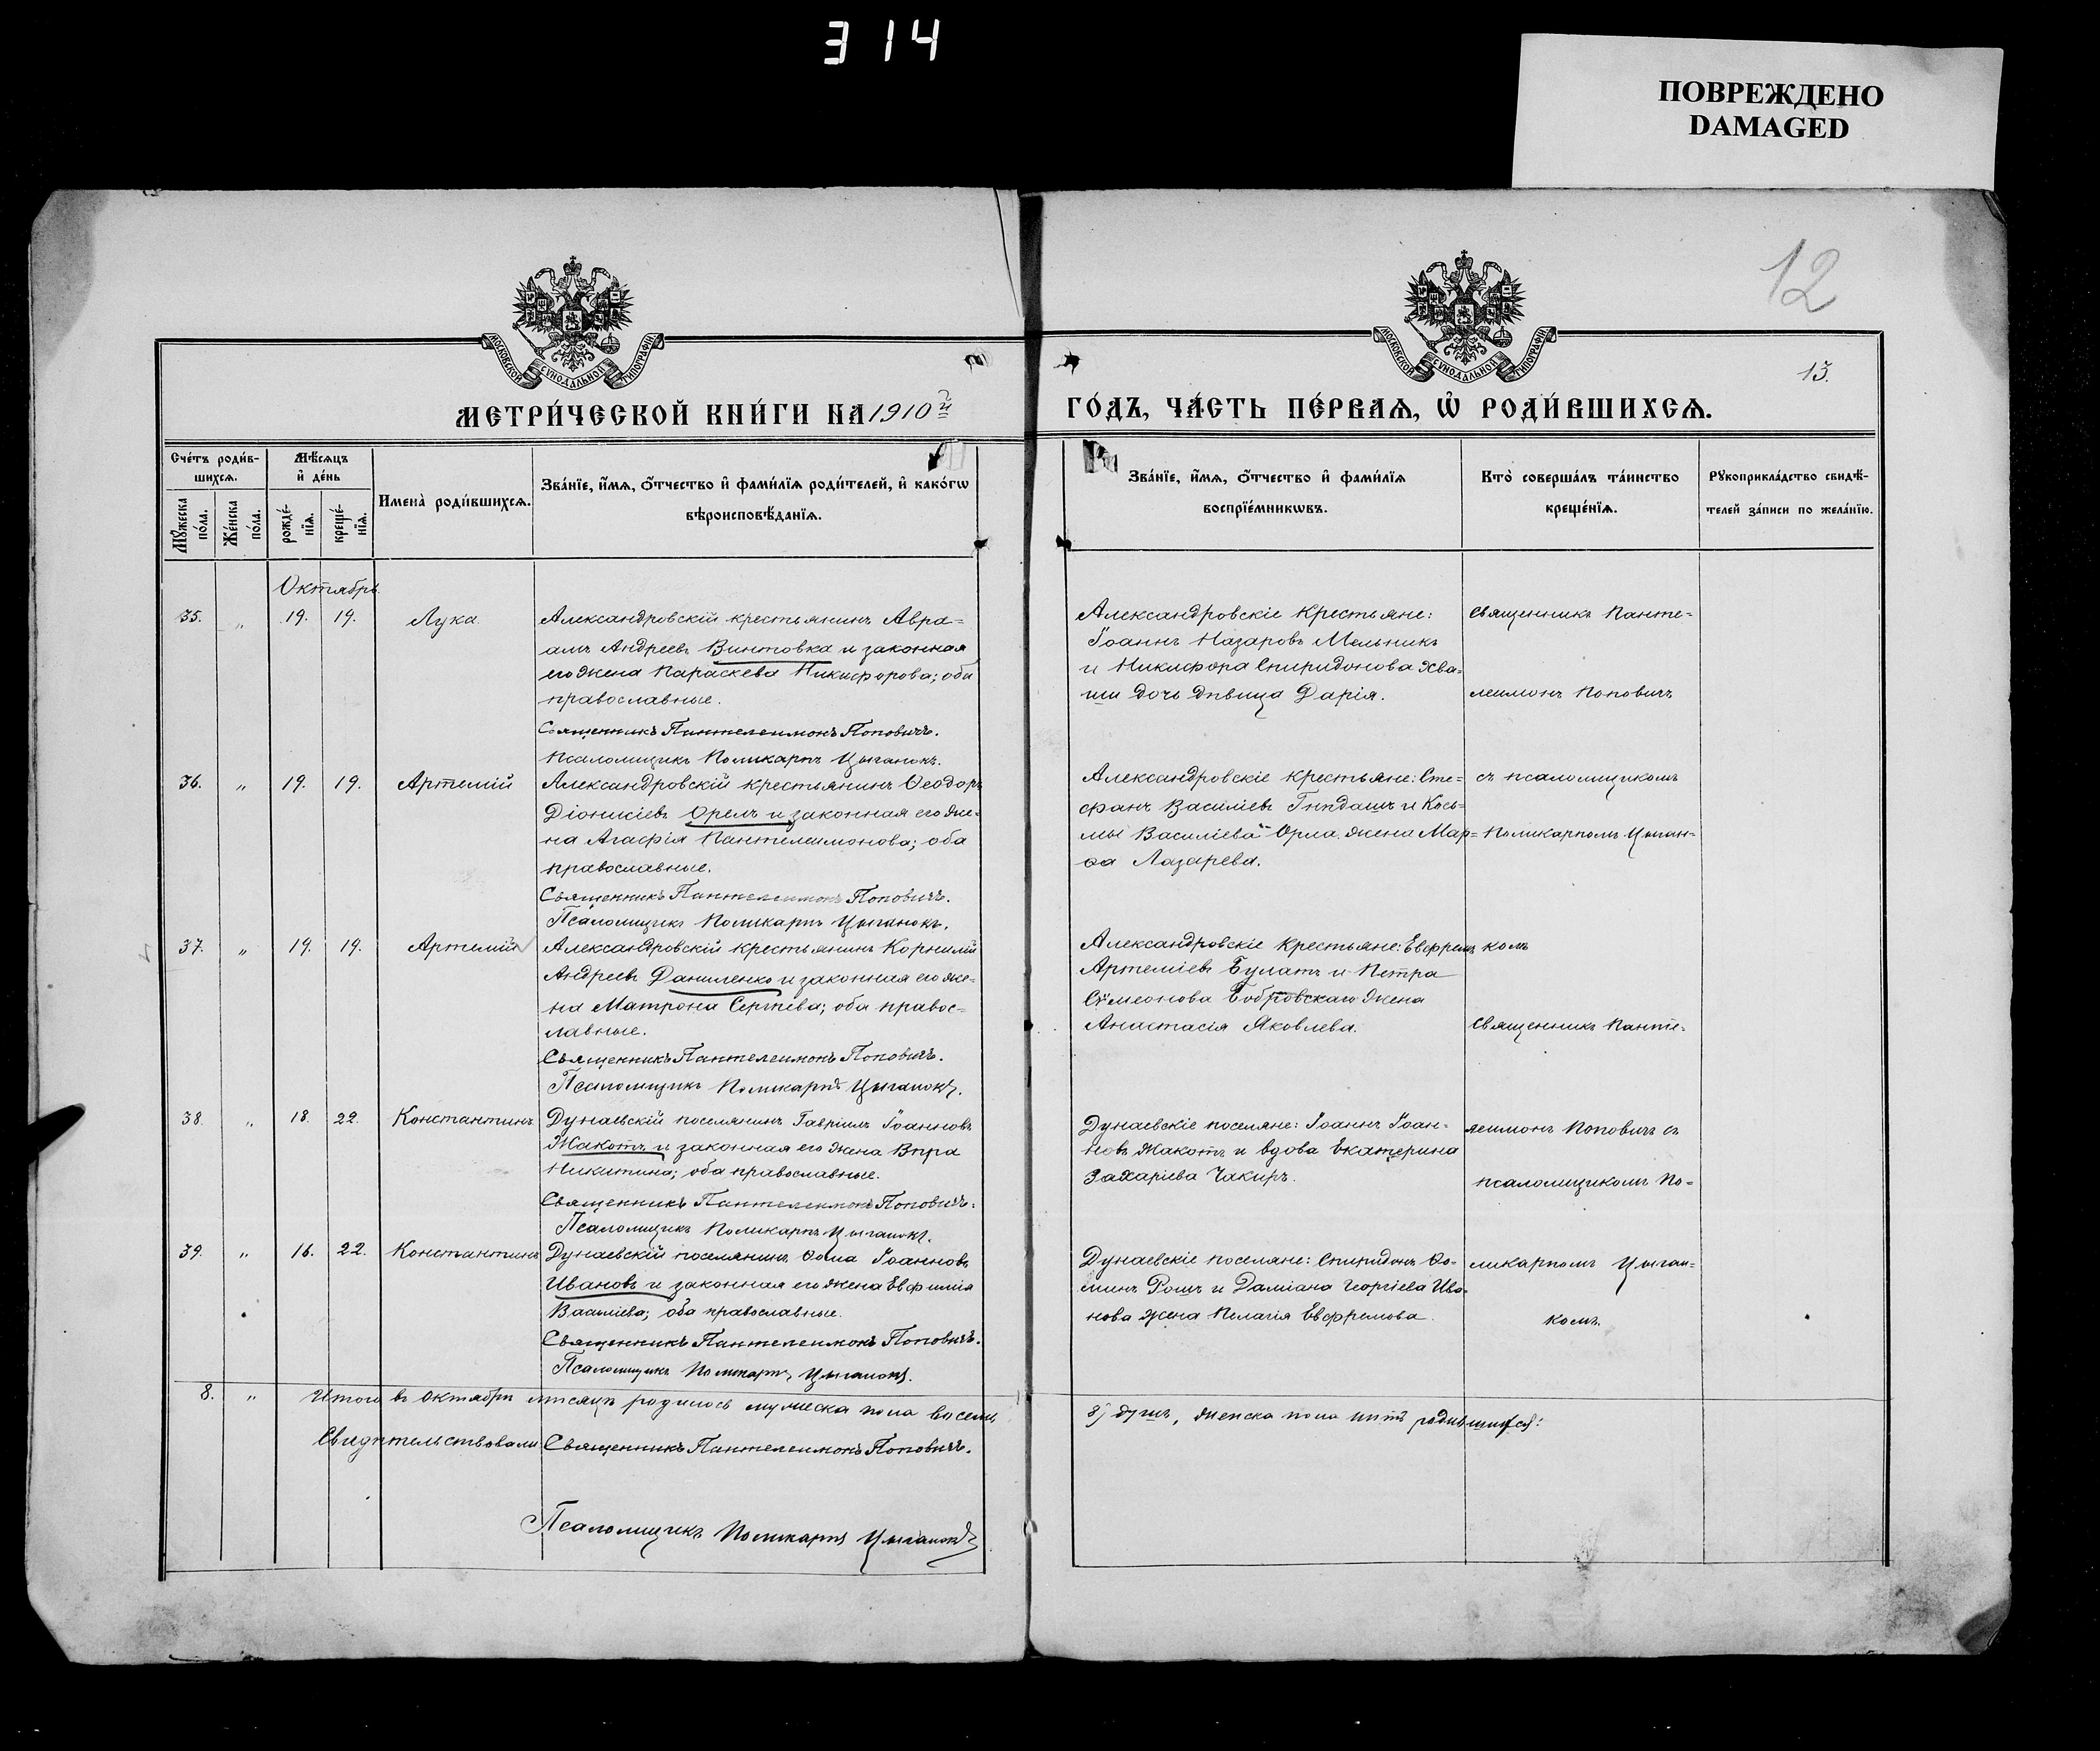 314
ПОВРЕЖДЕНО
DAMAGED
12
13.
МОСКОВСКОЙ СѴНОДАЛЬНОЙ ТИПОГРАФІИ
МОСКОВСКОЙ СѴНОДАЛЬНОЙ ТИПОГРАФІИ
МЕТРИ́ЧЕСКОЙ КНИ́ГИ НА 1910й
ГО́ДЪ, ЧА́СТЬ ПЕ́РВАѦ, Ѽ РОДИ́ВШИХСѦ.
Сче́тъ роди́в-
шихсѧ.
Мꙋ́жеска по́ла.
Же́нска по́ла.
Мѣ́сѧцъ
и҆ де́нь
рожде́-
нїѧ.
креще́-
нїѧ.
Имена̀ роди́вшихсѧ.
Зва́нїе, и҆́мѧ, ѻ҆́тчество и҆ фами́лїѧ роди́телей, и҆ како́гѡ
вѣроисповѣ́данїѧ.
Зва́нїе, и҆́мѧ, ѻ҆́тчество и҆ фами́лїѧ
воспрїе́мникѡвъ.
Кто̀ соверша́лъ та́инство
креще́нїѧ.
Рꙋкоприкла́дство свидѣ́-
телей за́писи по жела́нїю.
Октябрь.
35. " 19. 19. Лука
Александровскій крестьянинъ Авра=
амъ Андреевъ Винтовка и законная
его жена Параскева Никифорова; оба
православные.
Священникъ Пантелеимонъ Поповичъ.
Псаломщикъ Поликарпъ Цыганокъ.
Александровскіе крестьяне:
Іоаннъ Назаровъ Мельникъ
и Никифора Спиридонова Хва=
ши дочь дѣвица Дарія.
Священникъ Панте=
леимонъ Поповичъ
36. " 19. 19. Артемій
Александровскій крестьянинъ Ѳеодоръ
Діонисіевъ Орелъ и законная его же=
на Агафія Пантелеимонова; оба
православные.
Священникъ Пантелеимонъ Поповичъ.
Псаломщикъ Поликарпъ Цыганокъ.
Александровскіе крестьяне: Сте=
фанъ Василіевъ Гнѣдашъ и Кось=
мы Василіева Орла жена Мар=
ѳа Лазарева.
съ псаломщикомъ
Поликарпомъ Цыган=
37. " 19. 19. Артемій
Александровскій крестьянинъ Корнилій
Андреевъ Даниленко и законная его же=
на Матрона Сергіева; оба правос=
лавные.
Священникъ Пантелеимонъ Поповичъ.
Псаломщикъ Поликарпъ Цыганокъ.
Александровскіе крестьяне: Евфремъ
Артеміевъ Булатъ и Петра
Сѵмеонова Бобровскаго жена
Анастасія Яковлева.
комъ
Священникъ Панте=
38. " 18. 22. Константинъ
Дунаевскій поселянинъ Гавріилъ Іоанновъ
Жакотъ и законная его жена Вѣра
Никитина; оба православные.
Священникъ Пантелеимонъ Поповичъ.
Псаломщикъ Поликарпъ Цыганокъ.
Дунаевскіе поселяне: Іоаннъ Іоан=
новъ Жакотъ и вдова Екатерина
Захаріева Чакиръ.
леимонъ Поповичъ съ
псаломщикомъ По=
39. " 16. 22. Константинъ
Дунаевскій поселянинъ Ѳома Іоанновъ
Ивановъ и законная его жена Евфимія
Василіева; оба православные.
Священникъ Пантелеимонъ Поповичъ.
Псаломщикъ Поликарпъ Цыганокъ.
Дунаевскіе поселяне: Спиридонъ Ѳо=
минъ Рошъ и Даміана Георгіева Ива=
нова жена Пелагія Евфремова.
ликарпомъ Цыган=
комъ.
8. " Итого въ октябрѣ мѣсяцѣ родилось мужеска пола восемь
8) душъ, женска пола нѣтъ родившихся.
Свидѣтельствовали Священникъ Пантелеимонъ Поповичъ.
Псаломщикъ Поликарпъ Цыганокъ